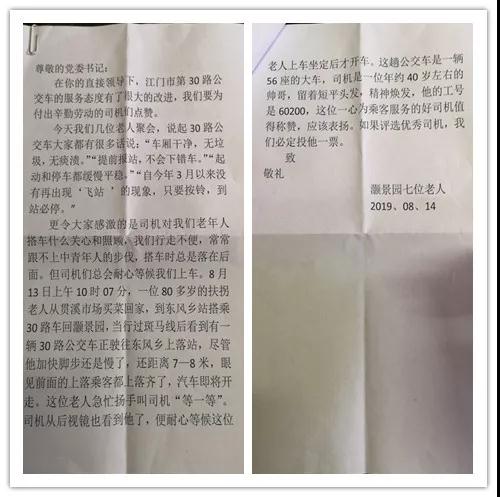 尊敬的党委书记：
在你的直接领导下，江门市第30路公
交车的服务态度有了很大的改进，我们要为
付出辛勤劳动的司机们点赞。
今天我们几位老人聚会，说起30路公
交车大家都有很多话说：“车厢干净，无垃
圾，无痰渍。”“提前报站，不会下错车。”“起
动和停车都缓慢平稳。”“自今年3月以来没
有再出现‘飞站’的现象，只要按铃，到
站必停。”
更令大家感激的是司机对我们老年人
搭车什么关心和照顾，我们行走不便，常常
跟不上中青年人的步伐，搭车时总是落在后
面。但司机们总会耐心等候我们上车。8月
13日上午10时07分，一位80多岁的扶拐
老人从贯溪市场买菜回家，到东风乡站搭乘
30路车回灏景园，当行过斑马线后看到有一
辆30路公交车正驶往东风乡上落站，尽管
他加快脚步还是慢了，还距离7—8米，眼
见前面的上落乘客都上落齐了，汽车即将开
走。这位老人急忙扬手叫司机“等一等”。
司机从后视镜也看到他了，便耐心等候这位
老人上车坐定后才开车。这趟公交车是一辆
56座的大车，司机是一位年约40岁左右的
帅哥，留着短平头发，精神焕发，他的工号
是60200，这位一心为乘客服务的好司机值
得称赞，应该表扬。如果评选优秀司机，我
们必定投他一票。
致
敬礼
灏景园七位老人
2019、08、14